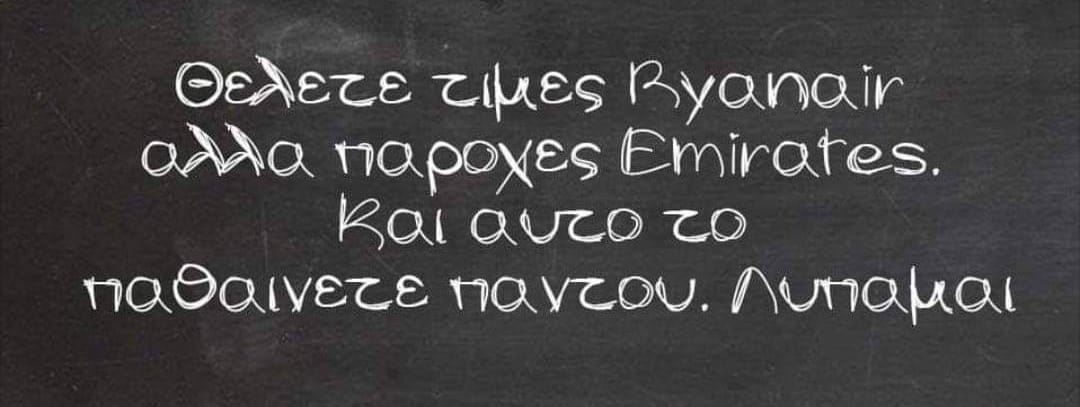 Θελετε τιμες Ryanair
αλλα παροχες Emirates.
Και αυτο το
παθαινετε παντου. Λυπαμαι